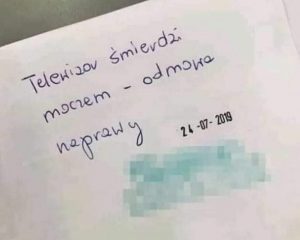 Telewizor śmierdzi
moczem - odmowa
naprawy
24-07-2019